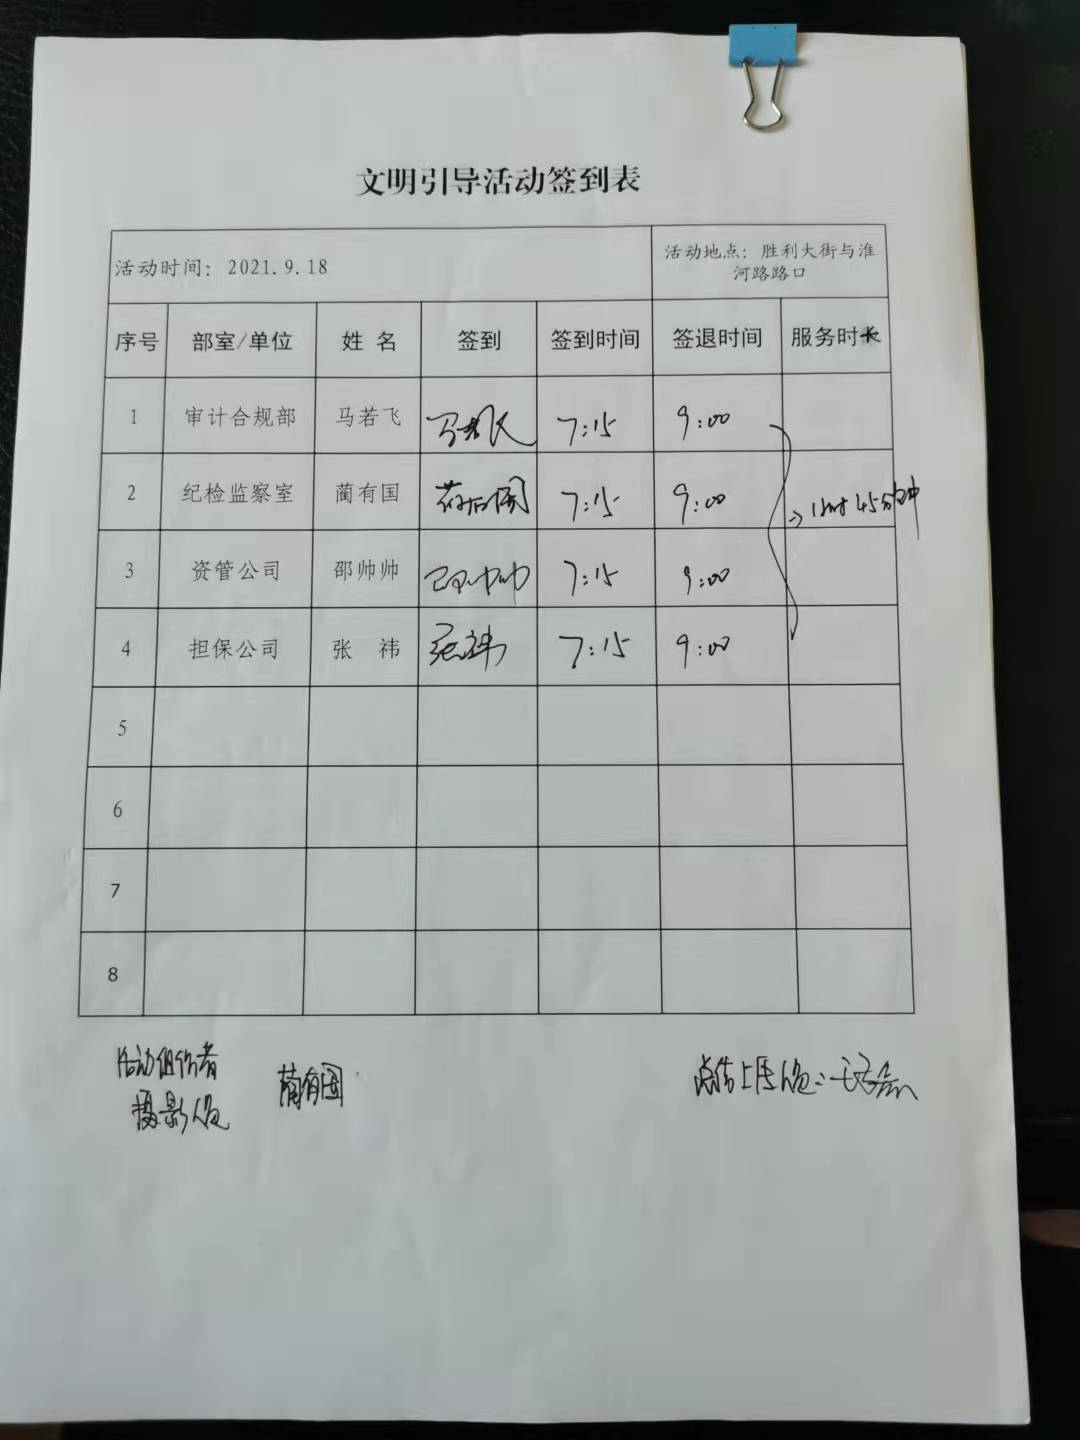 文明引导活动签到表
活动时间：2021.9.18
活动地点：胜利大街与淮
河路路口
序号 部室/单位 姓 名 签到 签到时间 签退时间 服务时长
1 审计合规部 马若飞 马若飞 7:15 9:00
2 纪检监察室 蔺有国 蔺有国 7:15 9:00
→1小时45分钟
3 资管公司 邵帅帅 邵帅帅 7:15 9:00
4 担保公司 张 祎 张祎 7:15 9:00
5
6
7
8
活动组织者
摄影人员 蔺有国
上传人员：